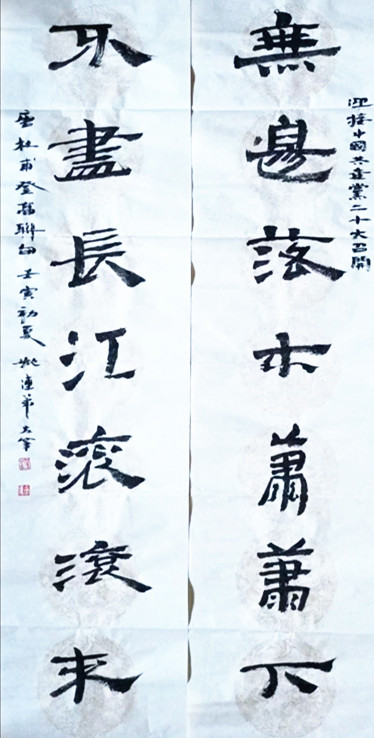 迎接中國共產黨二十大召開
無邊落木蕭蕭下
不盡長江滾滾來
唐杜甫登高聯句 壬寅初夏 姚連